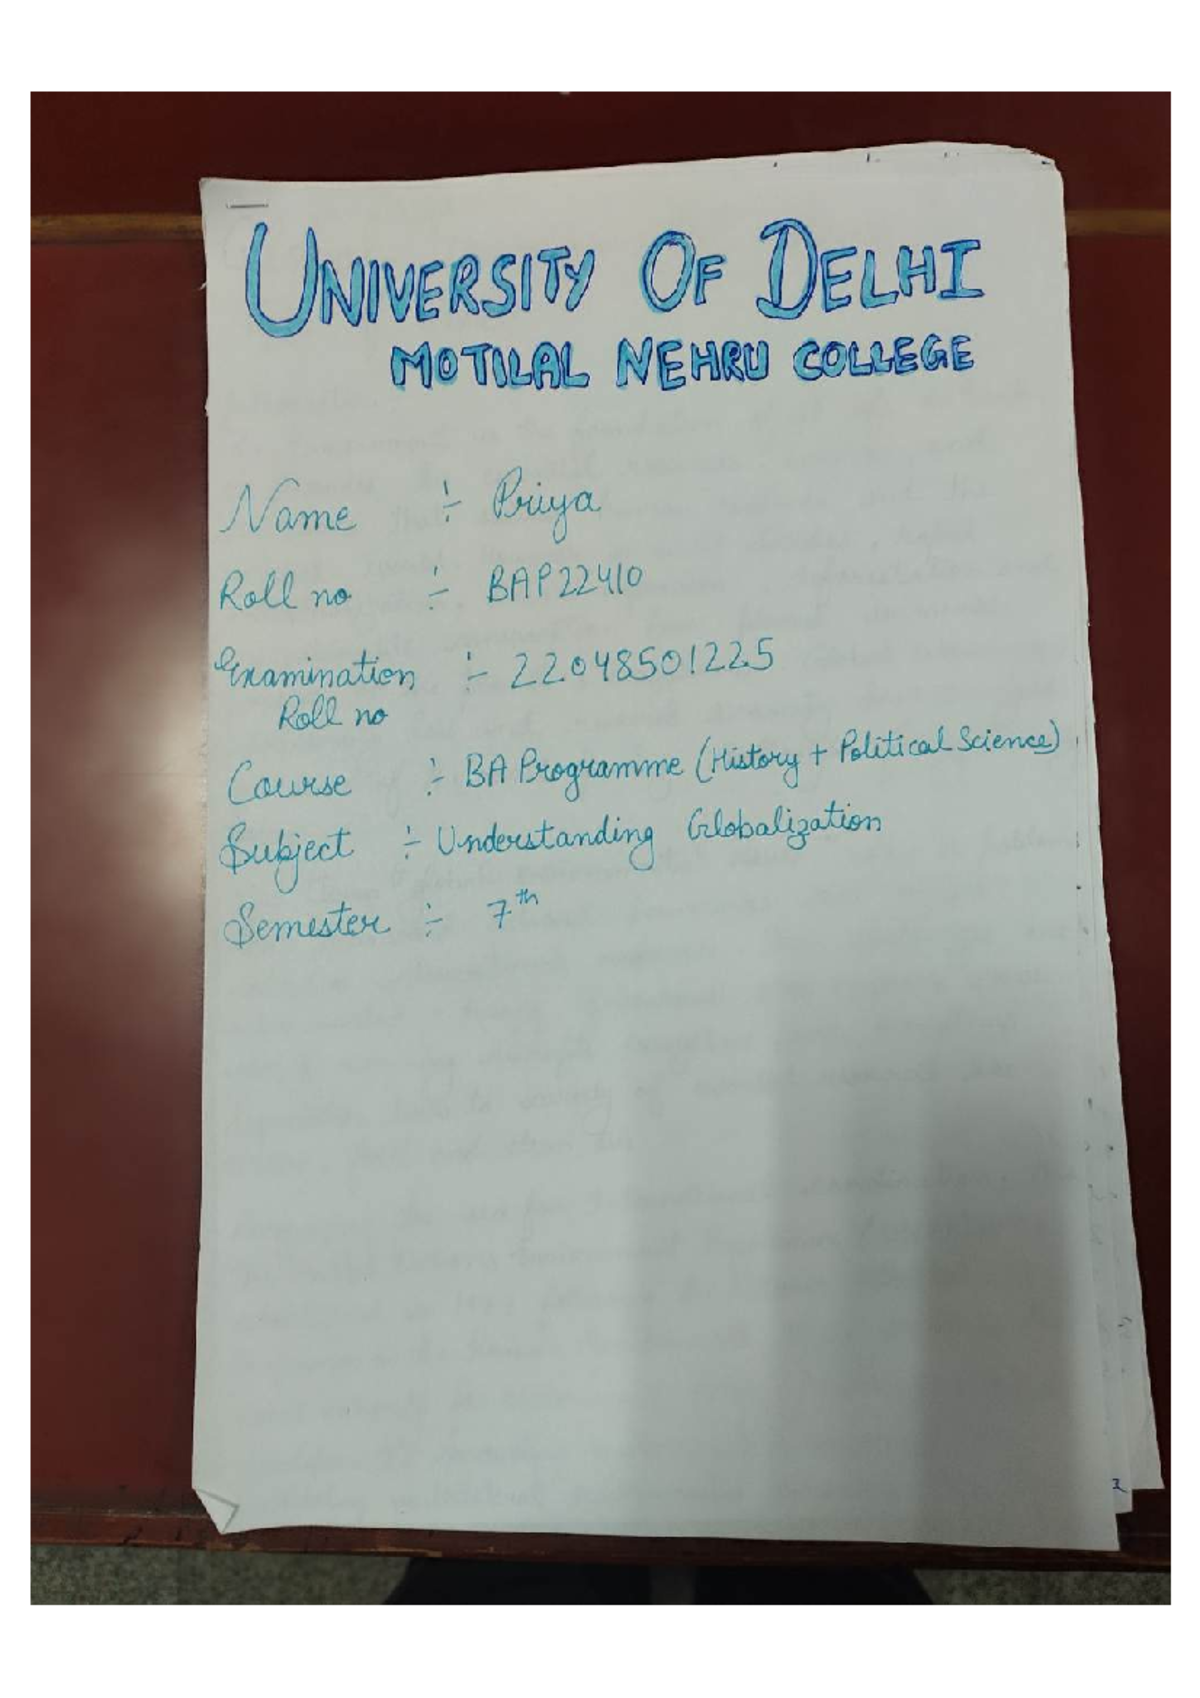 UNIVERSITY OF DELHI
MOTILAL NEHRU COLLEGE
Name :- Priya
Roll no :- BAP22410
Examination :- 22048501225
Roll no
Course :- BA Programme (History + Political Science)
Subject :- Understanding Globalization
Semester :- 7th